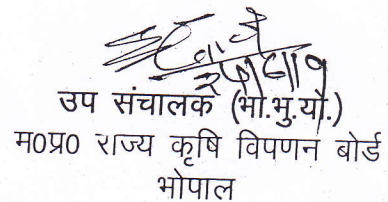 उप संचालक (भा.भु.यो.)
म0प्र0 राज्य कृषि विपणन बोर्ड
भोपाल